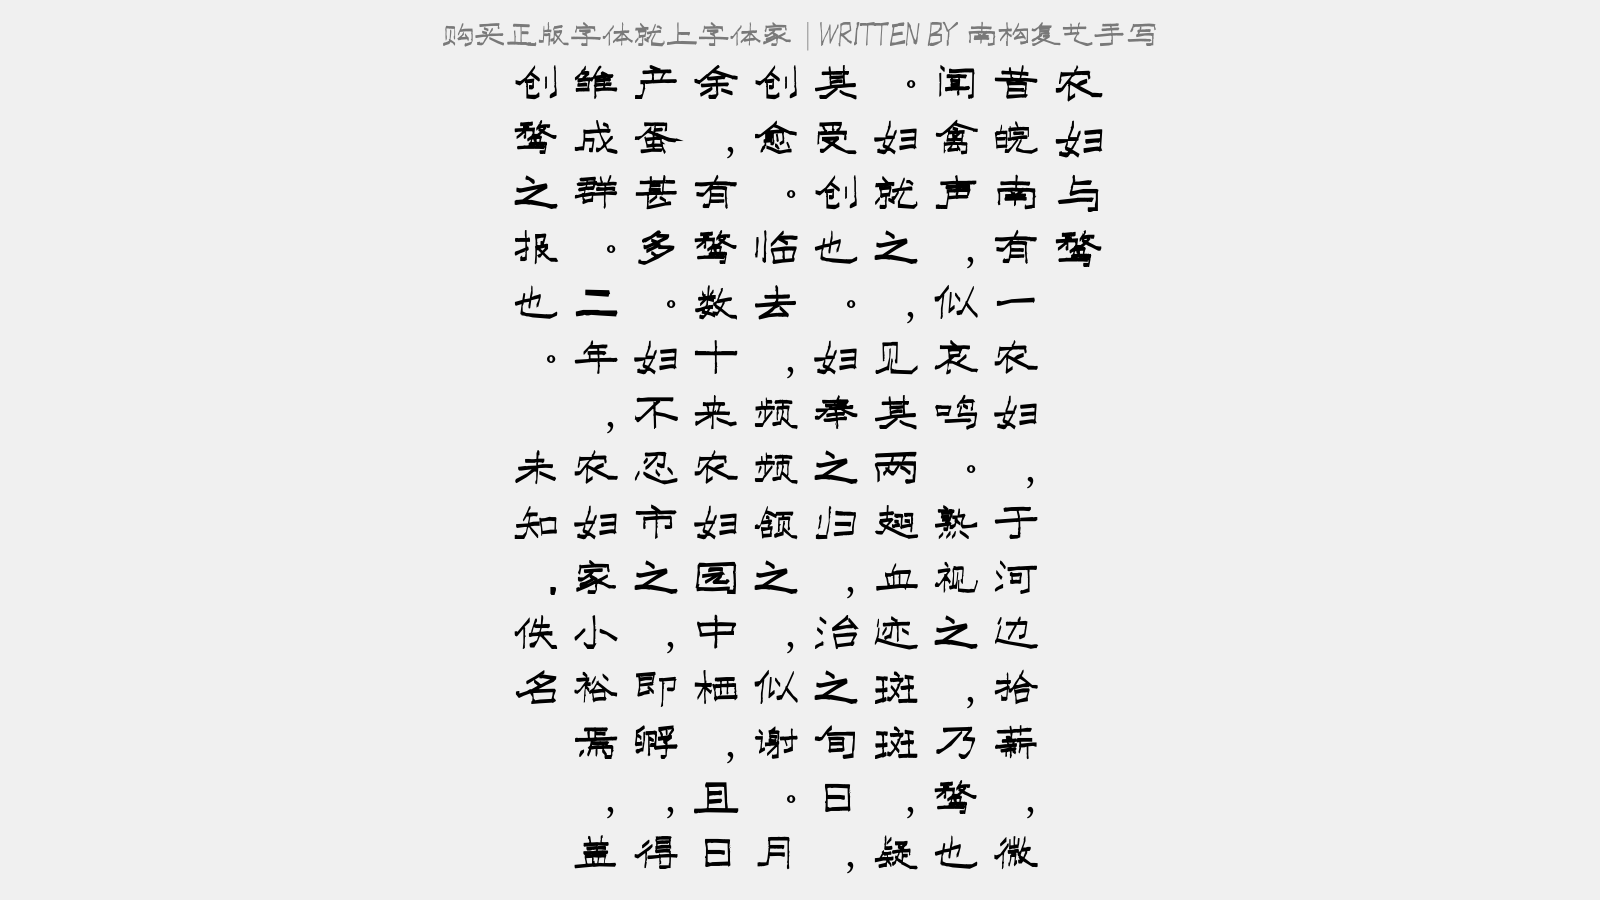 购买正版字体就上字体家 | WRITTEN BY 南构复艺手写
农妇与鹜
昔皖南有一农妇，于河边拾薪，微
闻禽声，似哀鸣。熟视之，乃鹜也
。妇就之，见其两翅血迹斑斑，疑
其受创也。妇奉之归，治之旬日，
创愈。临去，频频颔之，似谢。月
余，有鹜数十来农妇园中栖，且日
产蛋甚多。妇不忍市之，即孵，得
雏成群。二年，农妇家小裕焉，盖
创鹜之报也。 未知.佚名